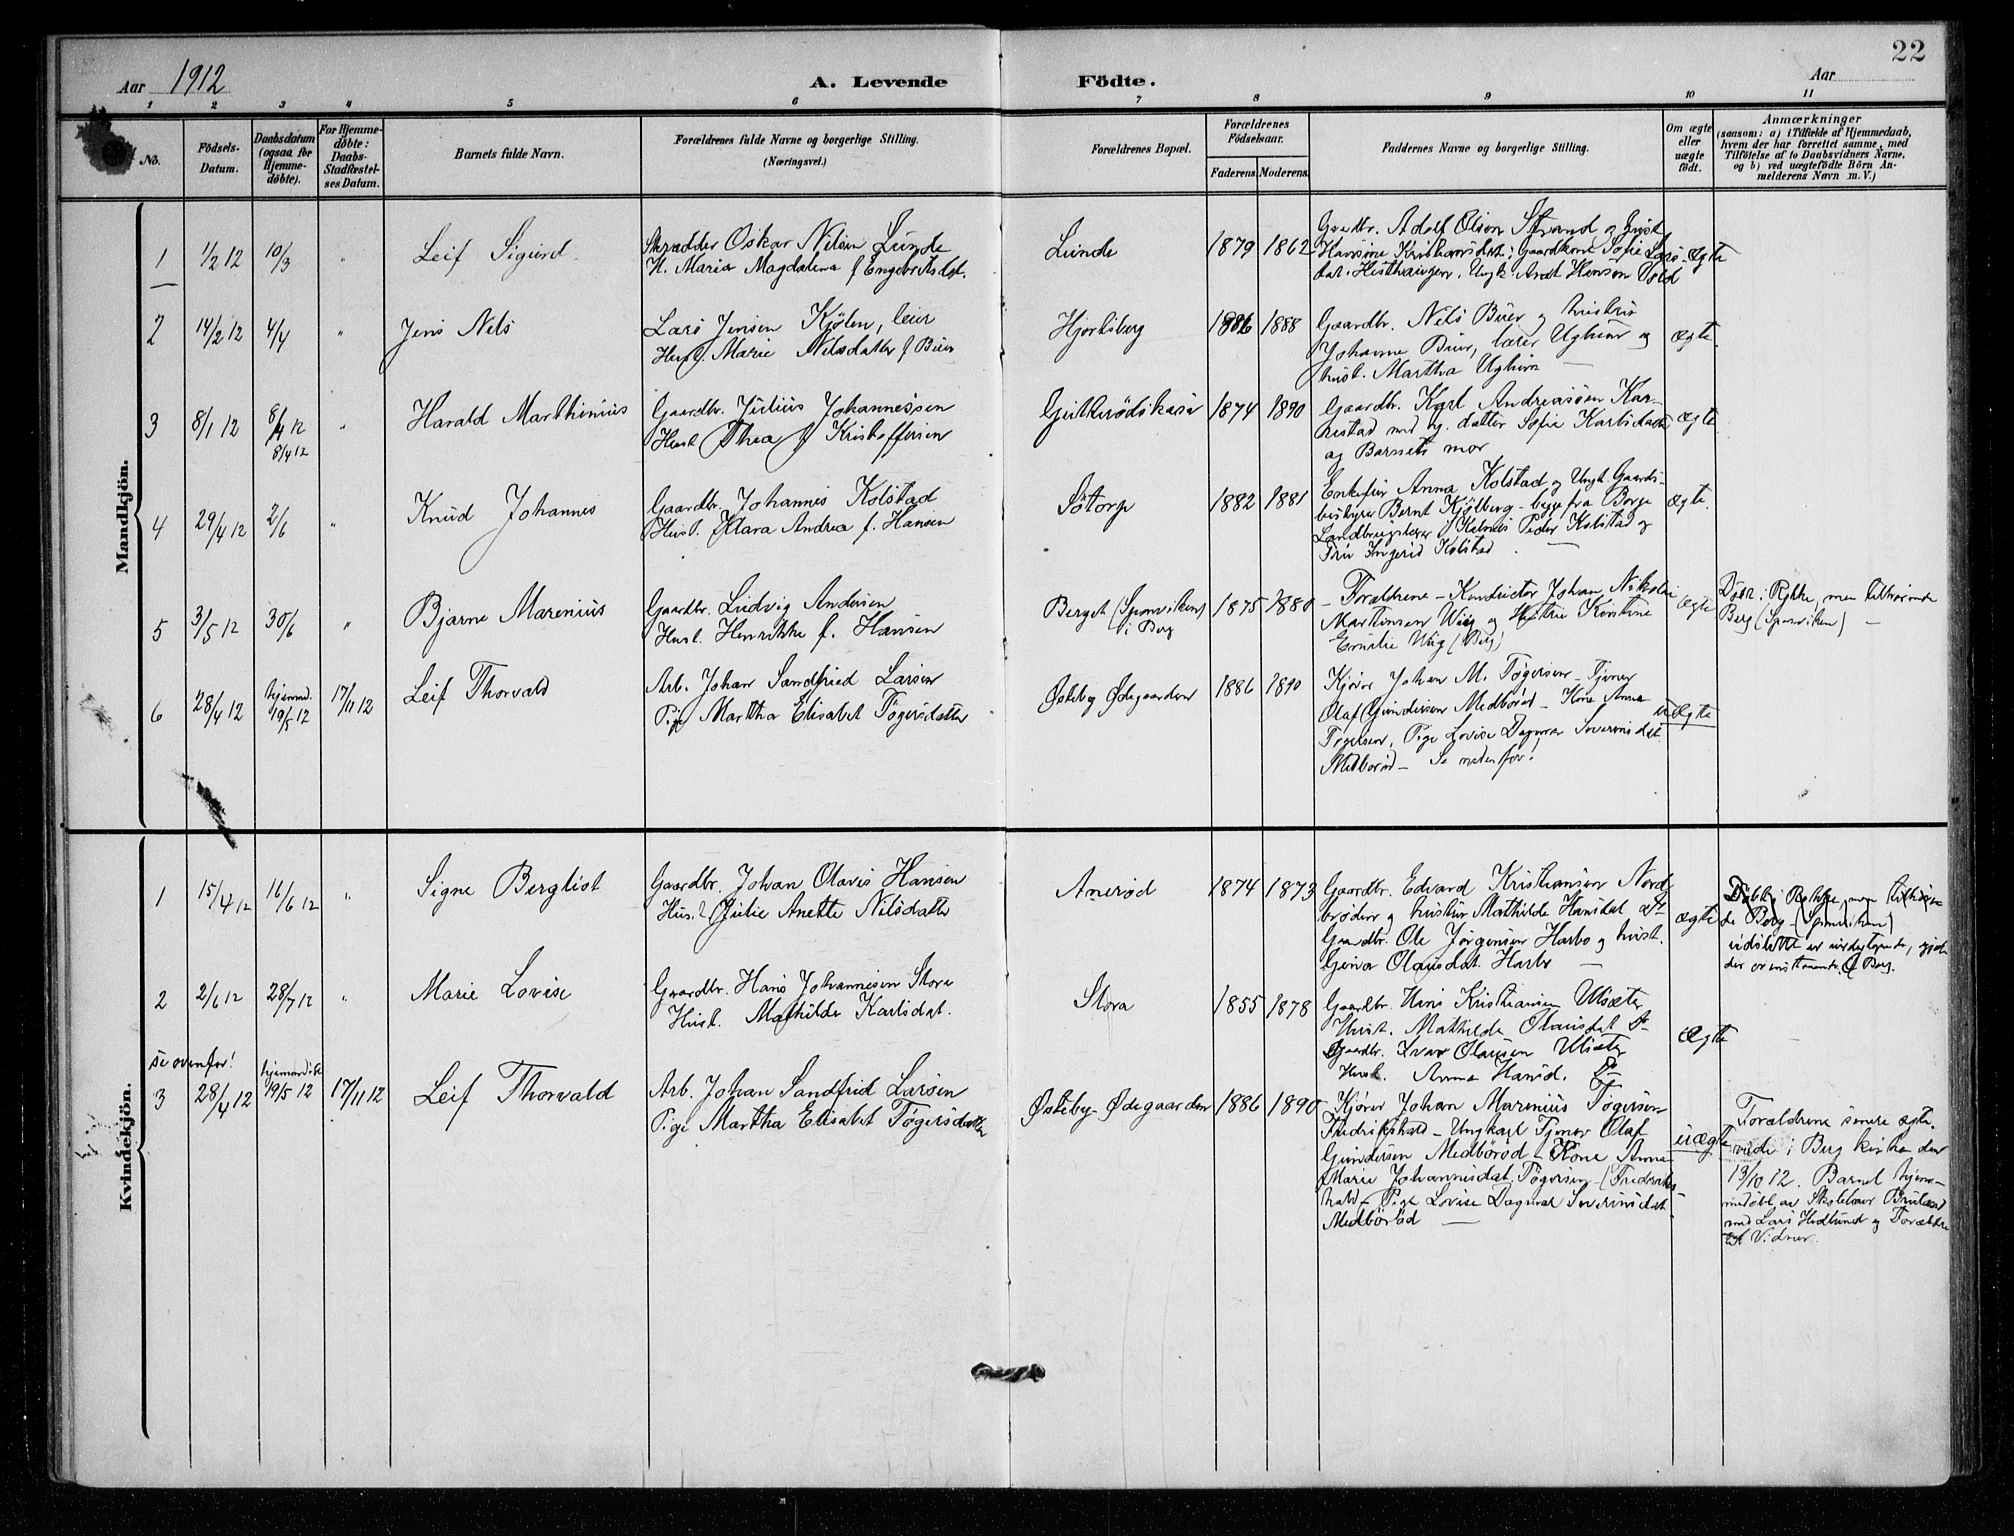 22
Aar 1912
A. Levende Födte.
Aar
1 2 3 4 5 6 7 8 9 10 11
Nö.
Födsels-Datum.
Daabsdatum (ogsaa for Hjemme-döbte).
For Hjemme-döbte: Daabs-Stadfæstelses Datum.
Barnets fulde Navn.
Forældrenes fulde Navne og borgerlige Stilling.
(Næringsvei.)
Forældrenes Bopæl.
Forældrenes Födselsaar.
Faderens. Moderens.
Faddernes Navne og borgerlige Stilling.
Om ægte eller uægte födt.
Anmærkninger
(saasom: a) i Tilfælde af Hjemmedaab,
hvem der har forrettet samme, med
Tilföielse af to Daabsvidners Navne,
og b) ved uægtefödte Börn An-
melderens Navn m. V.)
Mandkjön.
1 1/2 12 10/3 " Leif Sigurd
Skrædder Oskar Nilsen Lunde
H. Maria Magdalena f Engebretsdat.
Lunde 1879 1862
Gaardbr. Adolf Olsen Strand og
Kristiansdatt; Gaardkone Sofie Lars-
dat. Ungk. Hansen
ægte
2 14/2 12 4/4 " Jens Nils
Lars Jensen Kjölen, leier
Hust. Marie Nilsdatter f Buer
Hjortsberg 1886 1888
Gaardbr. Nils Buer og hustru
Johanne Buer, lærer og
hust. Martha
ægte.
3 8/1 12 8/4 12 8/4 12 " Harald Marthinius
Gaardbr. Julius Johannessen
Hust Thea f Kristoffersen
1874 1890
Gaardbr. Karl Andreassen Kar-
restad med datter Sofie Karlsdatter
og Barnets mor
ægte
4 29/4 12 2/6 " Knud Johannes
Gaardbr. Johannes Kolstad
Hust. Klara Andrea f. Hansen
Sötorp 1882 1881
Enkefru Anna Kolstad og Ungk. Gaards-
bestyrer Bernt Kjölberg - begge fra Borge
Peder Kolstad og
Fru Ingerid Kolstad.
ægte.
5 3/5 12 30/6 " Bjarne Marenius
Gaardbr. Ludvig Andersen
Hust. Henrikke f. Hansen
Berget (Sponviken) i Berg 1875 1880
- Forældrene - Konduktor Johan Nikolai
Martinsen Wiig og Hustru Kirstine
Emilie Wiig (Berg)
ægte
Döbt i Rokke, men tilhörende
Berg (Sponviken) -
6 28/4 12 hjemmed. 19/5 12 17/11 12 Leif Thorvald
Arb. Johan Sandfried Larsen
Pige Martha Elisabet Tögersdatter
Østeby Ødegaarden 1886 1890
Kjörer Johan M. Tögersen - Tjener
Olaf Gundersen Medböröd - Kone Anna
Togersen, Pige Lovise Dagmar Severinsdat.
Medböröd - Se nedenfor!
uægte
Kvindekjön.
1 15/4 12 16/6 12 " Signe Bergliot
Gaardbr. Johan Olavus Hansen
Hust. Julie Anette Nilsdatter
Aneröd 1874 1873
Gaardbr. Edvard Kristiansen Nord-
bröden og hustru Mathilde Hansdat
Gaardbr. Ole Jörgensen Harbo og hust.
Gina Olausdat. Harbo -
ægte
Döbt i Rokke, men tilhören-
de Berg (Sponviken)
2 2/6 12 28/7 12 " Marie Lovise
Gaardbr. Hans Johannesen Stora
Hust. Mathilde Karlsdat.
Stora 1855 1878
Gaardbr. Hans Kristiansen Ulsæter
Hust. Mathilde Olausdat
Gaardbr. Ivar Olausen Ulsæter
Hust. Anna Hansd.
ægte
se ovenfor!
3 28/4 12 hjemmedöbt 19/5 12 17/11 12 Leif Thorvald
Arb. Johan Sandfrid Larsen
Pige Martha Elisabet Tögersdatter
Østeby-Ødegaarden 1886 1890
Kjörer Johan Marenius Tögersen
Fredrikshald - Ungkarl Tjener Olaf
Gundersen Medböröd - Kone Anna
Marie Johannesdat. Tögersen (Fredriks-
hald - Pige Lovise Dagmar Severinsdat.
Medböröd -
uægte
Forældrene senere ægte-
viede i Berg kirke den
13/10 12. Barnet hjem-
medöbt av Skolelærer
med Lars Hedlund og Forældre
Vidner.